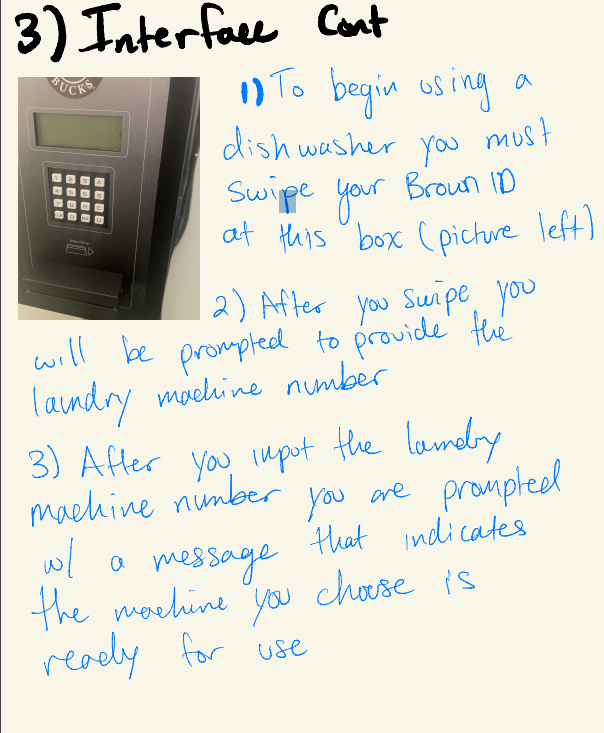 3) Interface Cont
BUCKS
1) To begin using a
dishwasher you must
swipe your Brown ID
at this box (picture left)
2) After you swipe you
will be prompted to provide the
laundry machine number
3) After you input the laundry
machine number you are prompted
w/ a message that indicates
the machine you choose is
ready for use